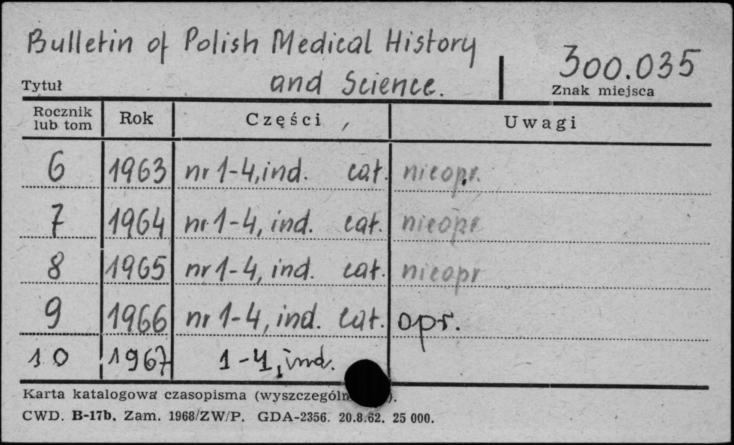 Bulletin of Polish Medical History
and Science.
300.035
Tytuł
Znak miejsca
Rocznik lub tom Rok Części Uwagi
6 1963 nr 1-4, ind. cał. nieopr.
7 1964 nr 1-4, ind. cał. nieopr
8 1965 nr 1-4, ind. cał. nieopr
9 1966 nr 1-4, ind. cał. opr.
10 1967 1-4, ind.
Karta katalogowa czasopisma (wyszczególn
CWD. B-17b. Zam. 1968/ZW/P. GDA-2356. 20.8.62. 25 000.